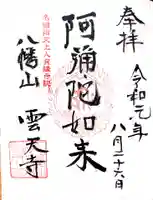 奉拝
令和元年
八月二十六日
阿彌陀如来
八幡山
雲天寺